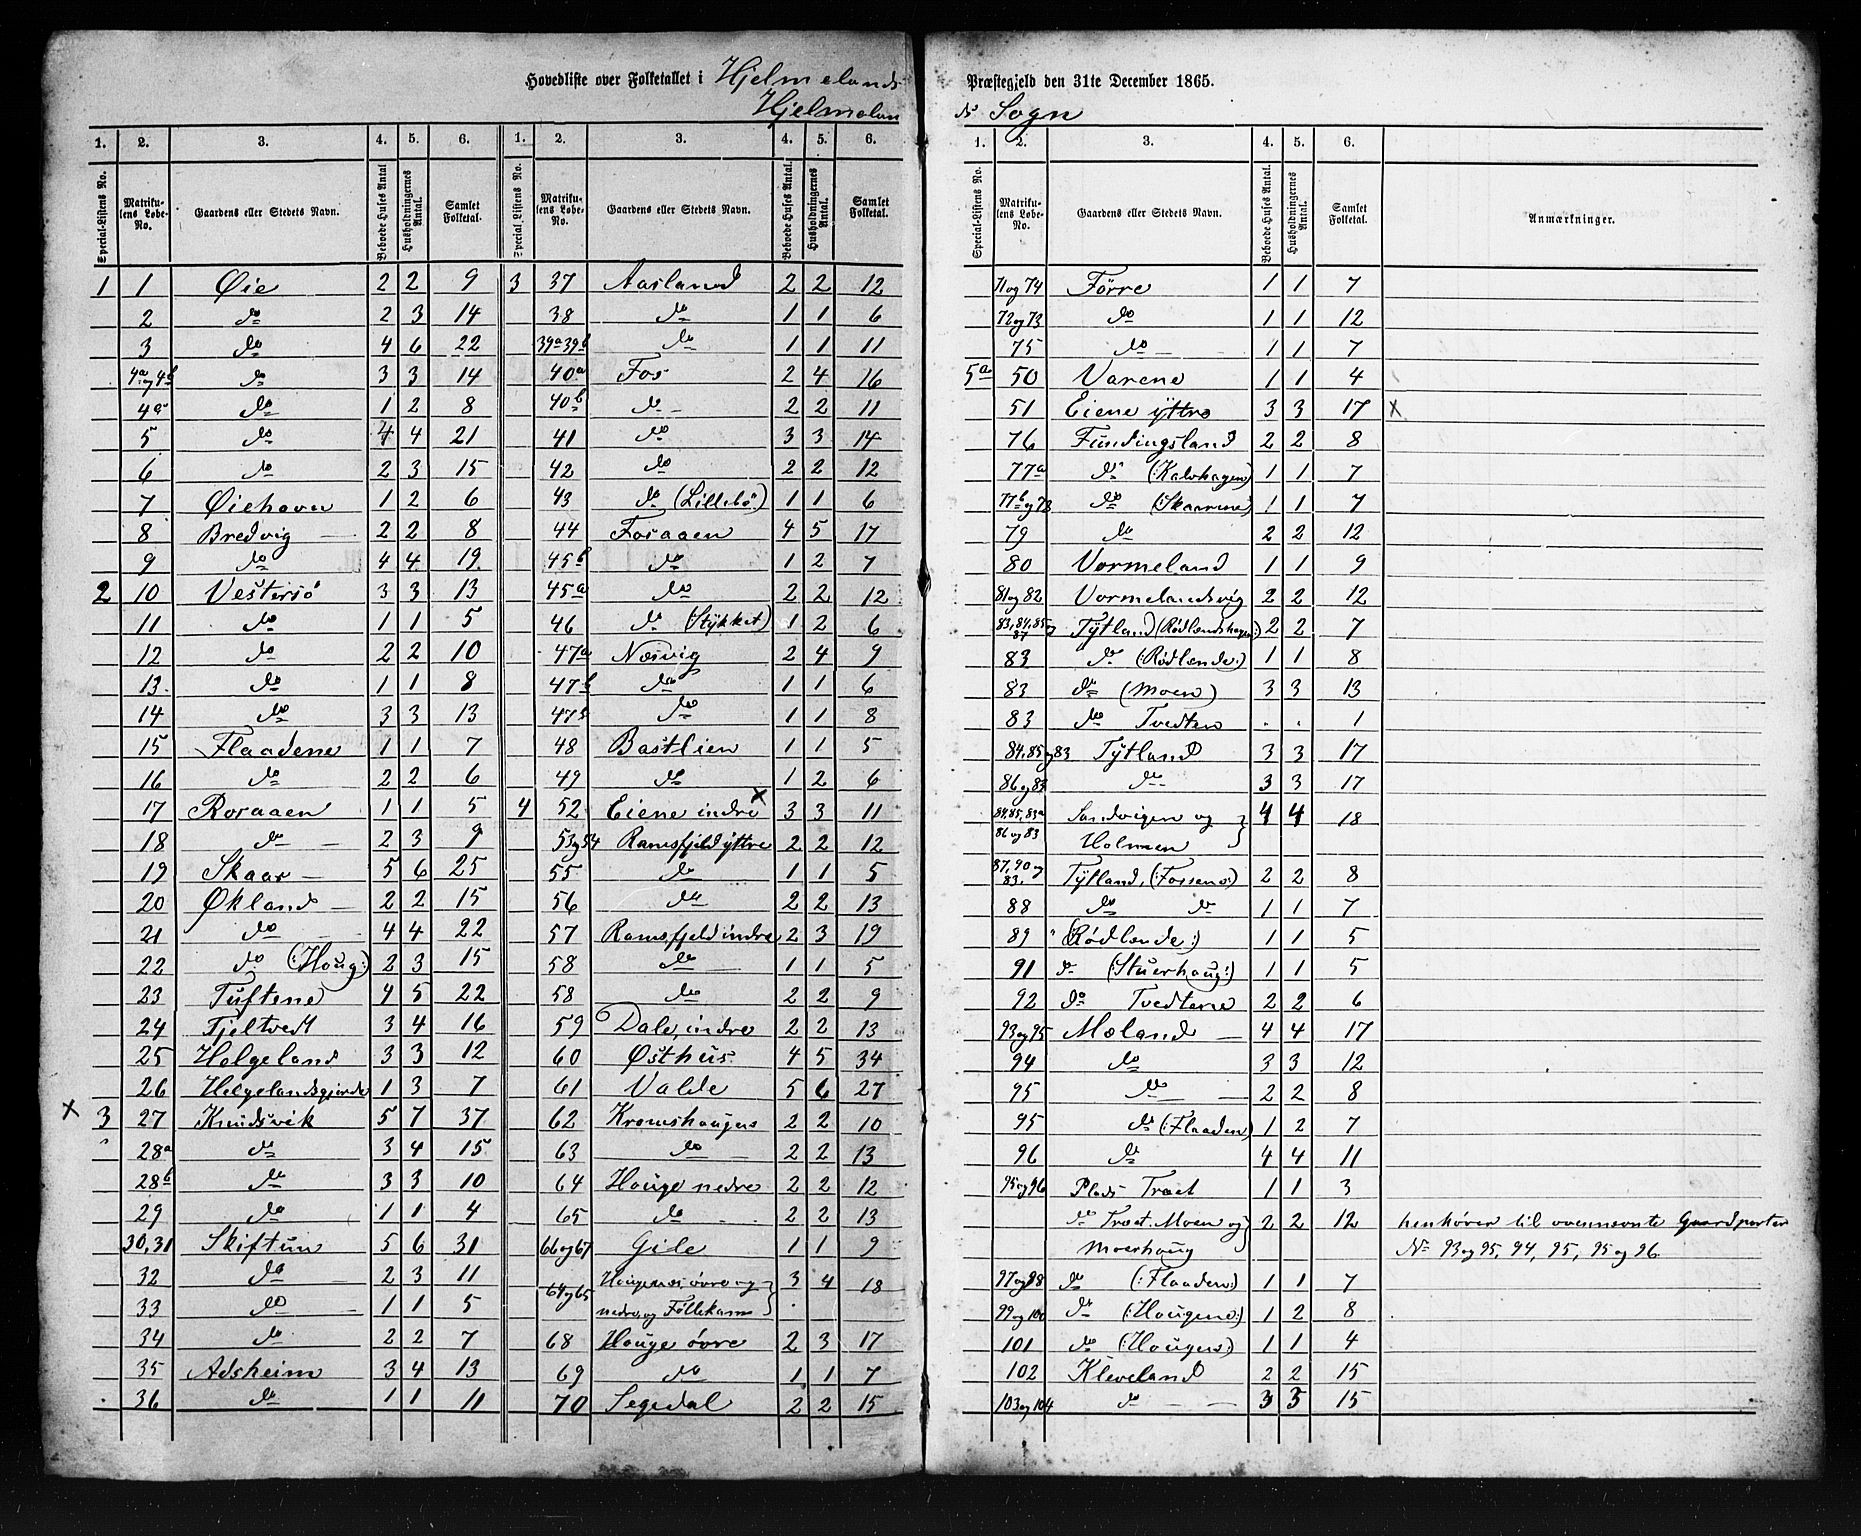 Hovedliste over Folketallet i Hjelmelands Præstegjeld den 31te December 1865.
Hjelmelands Sogn
1. 2. 3. 4. 5. 6. 1. 2. 3. 4. 5. 6.
Special-Listens No. Matrikulens Løbe-No. Gaardens eller Stedets Navn. Beboede Huses Antal Husholdningernes Antal. Samlet Folketal. Special-Listens No. Matrikulens Løbe-No. Gaardens eller Stedets Navn. Beboede Huses Antal. Husholdningernes Antal. Samlet Folketal
1 1 Øie 2 2 9 3 37 Aasland 2 2 12
2 do 2 3 14 38 do 1 1 6
3 do 4 6 22 39a 39b do 1 1 11
4a og 4b do 3 3 14 40a Fos 2 4 16
4a do 1 2 8 40b do 2 2 11
5 do 4 4 21 41 do 3 3 14
6 do 2 3 15 42 do 2 2 12
7 Øiehaven 1 2 6 43 do (Lillebö:) 1 1 6
8 Bredvig 2 2 8 44 Fosaaen 4 5 17
9 do 4 4 19 45b do 1 2 7
2 10 Vestersö 3 3 13 45a do 2 2 12
11 do 1 1 5 46 do (Stykket) 1 2 6
12 do 2 2 10 47a Næsvig 2 4 9
13 do 1 1 8 47b do 1 1 6
14 do 3 3 13 47 do 1 1 8
15 Flaadene 1 1 7 48 Bastlien 1 1 5
16 do 2 2 6 49 do 1 2 6
17 Roraaen 1 1 5 4 52 Eiene indre x 3 3 11
18 do 2 3 9 53 og 54 Ramsfjeld yttre 2 2 12
19 Skaar 5 6 25 55 do 1 1 5
20 Økland 2 2 15 56 do 2 2 13
21 do 4 4 22 57 Ramsfjeld indre 2 3 19
22 do (:Houg:) 2 3 15 58 do 1 1 5
23 Tuftene 4 5 22 58 do 2 2 9
24 Fjeltvedt 3 4 16 59 Dale, indre 2 2 13
25 Helgeland 3 3 12 60 Østhus 4 5 34
26 Helgelandsgjerde 1 3 7 61 Valde 5 6 27
x 3 27 Knudsvik 5 7 37 62 Kromshaugen 2 2 10
28a do 3 4 15 63 do 2 2 13
28b do 3 3 10 64 Houge nedre 2 2 12
29 do 1 1 4 65 do 2 2 13
30, 31 Skiftun 5 6 31 66 og 67 Gile 1 1 9
32 do 2 3 11 64 og 65 Hougenes övre og 3 4 18
33 do 1 1 5 nedre, og
34 do 2 2 7 68 Houge övre 2 3 17
35 Adsheim 3 4 13 69 do 1 1 7
36 do 1 1 11 70 Segedal 2 2 15
1. 2. 3. 4. 5. 6.
Special-Listens No. Matrikulens Løbe-No. Gaardens eller Stedets Navn. Beboede Huses Antal. Husholdningernes Antal. Samlet Folketal. Anmærkninger.
71 og 74 Förre 1 1 7
72 og 73 do 1 1 12
75 do 1 1 7
5a 50 Varene 1 1 4
51 Eiene yttre 3 3 17 x
76 Fundingsland 2 2 8
77a do (:Kalvhagen) 1 1 7
77b og 78 do (Skaarene) 1 1 7
79 do 2 2 12
80 Vormeland 1 1 9
81 og 82 Vormelandsvig 2 2 12
83, 84, 85 og 87 Tytland (Rödlandshagen:) 2 2 7
83 do (:Rödlende:) 1 1 8
83 do (Moen) 3 3 13
83 do Tvedten . . 1
84, 85 og 83 Tytland 3 3 17
86 og 83 do 3 3 17
84, 85, 83a Sandvigen og 4 4 18
86 og 83 Holmen
87, 90 og 83. Tytland, (:Fossene:) 2 2 8
88 do do 1 1 7
89 " (Rödlende:) 1 1 5
91 do (:Stuerhaug:) 1 1 5
92 do Tvedtene 2 2 6
93 og 95 Mæland 4 4 17
94 do 3 3 12
95 do 2 2 8
95 do (:Flaaden) 1 2 7
96 do 4 4 11
95 og 96 Plads Træet 1 1 3
do Træet, Moen og 2 2 12 henhörer til ovennævnte Gaardparter
Moerhaug No 93 og 95, 94, 95, 95 og 96.
97 og 98 do (:Flaaden:) 1 1 7
99 og 100 do (:Hougene:) 1 2 8
101 do (:Hougen:) 1 1 4
102 Kleveland 2 2 15
103 og 104 do 3 3 15